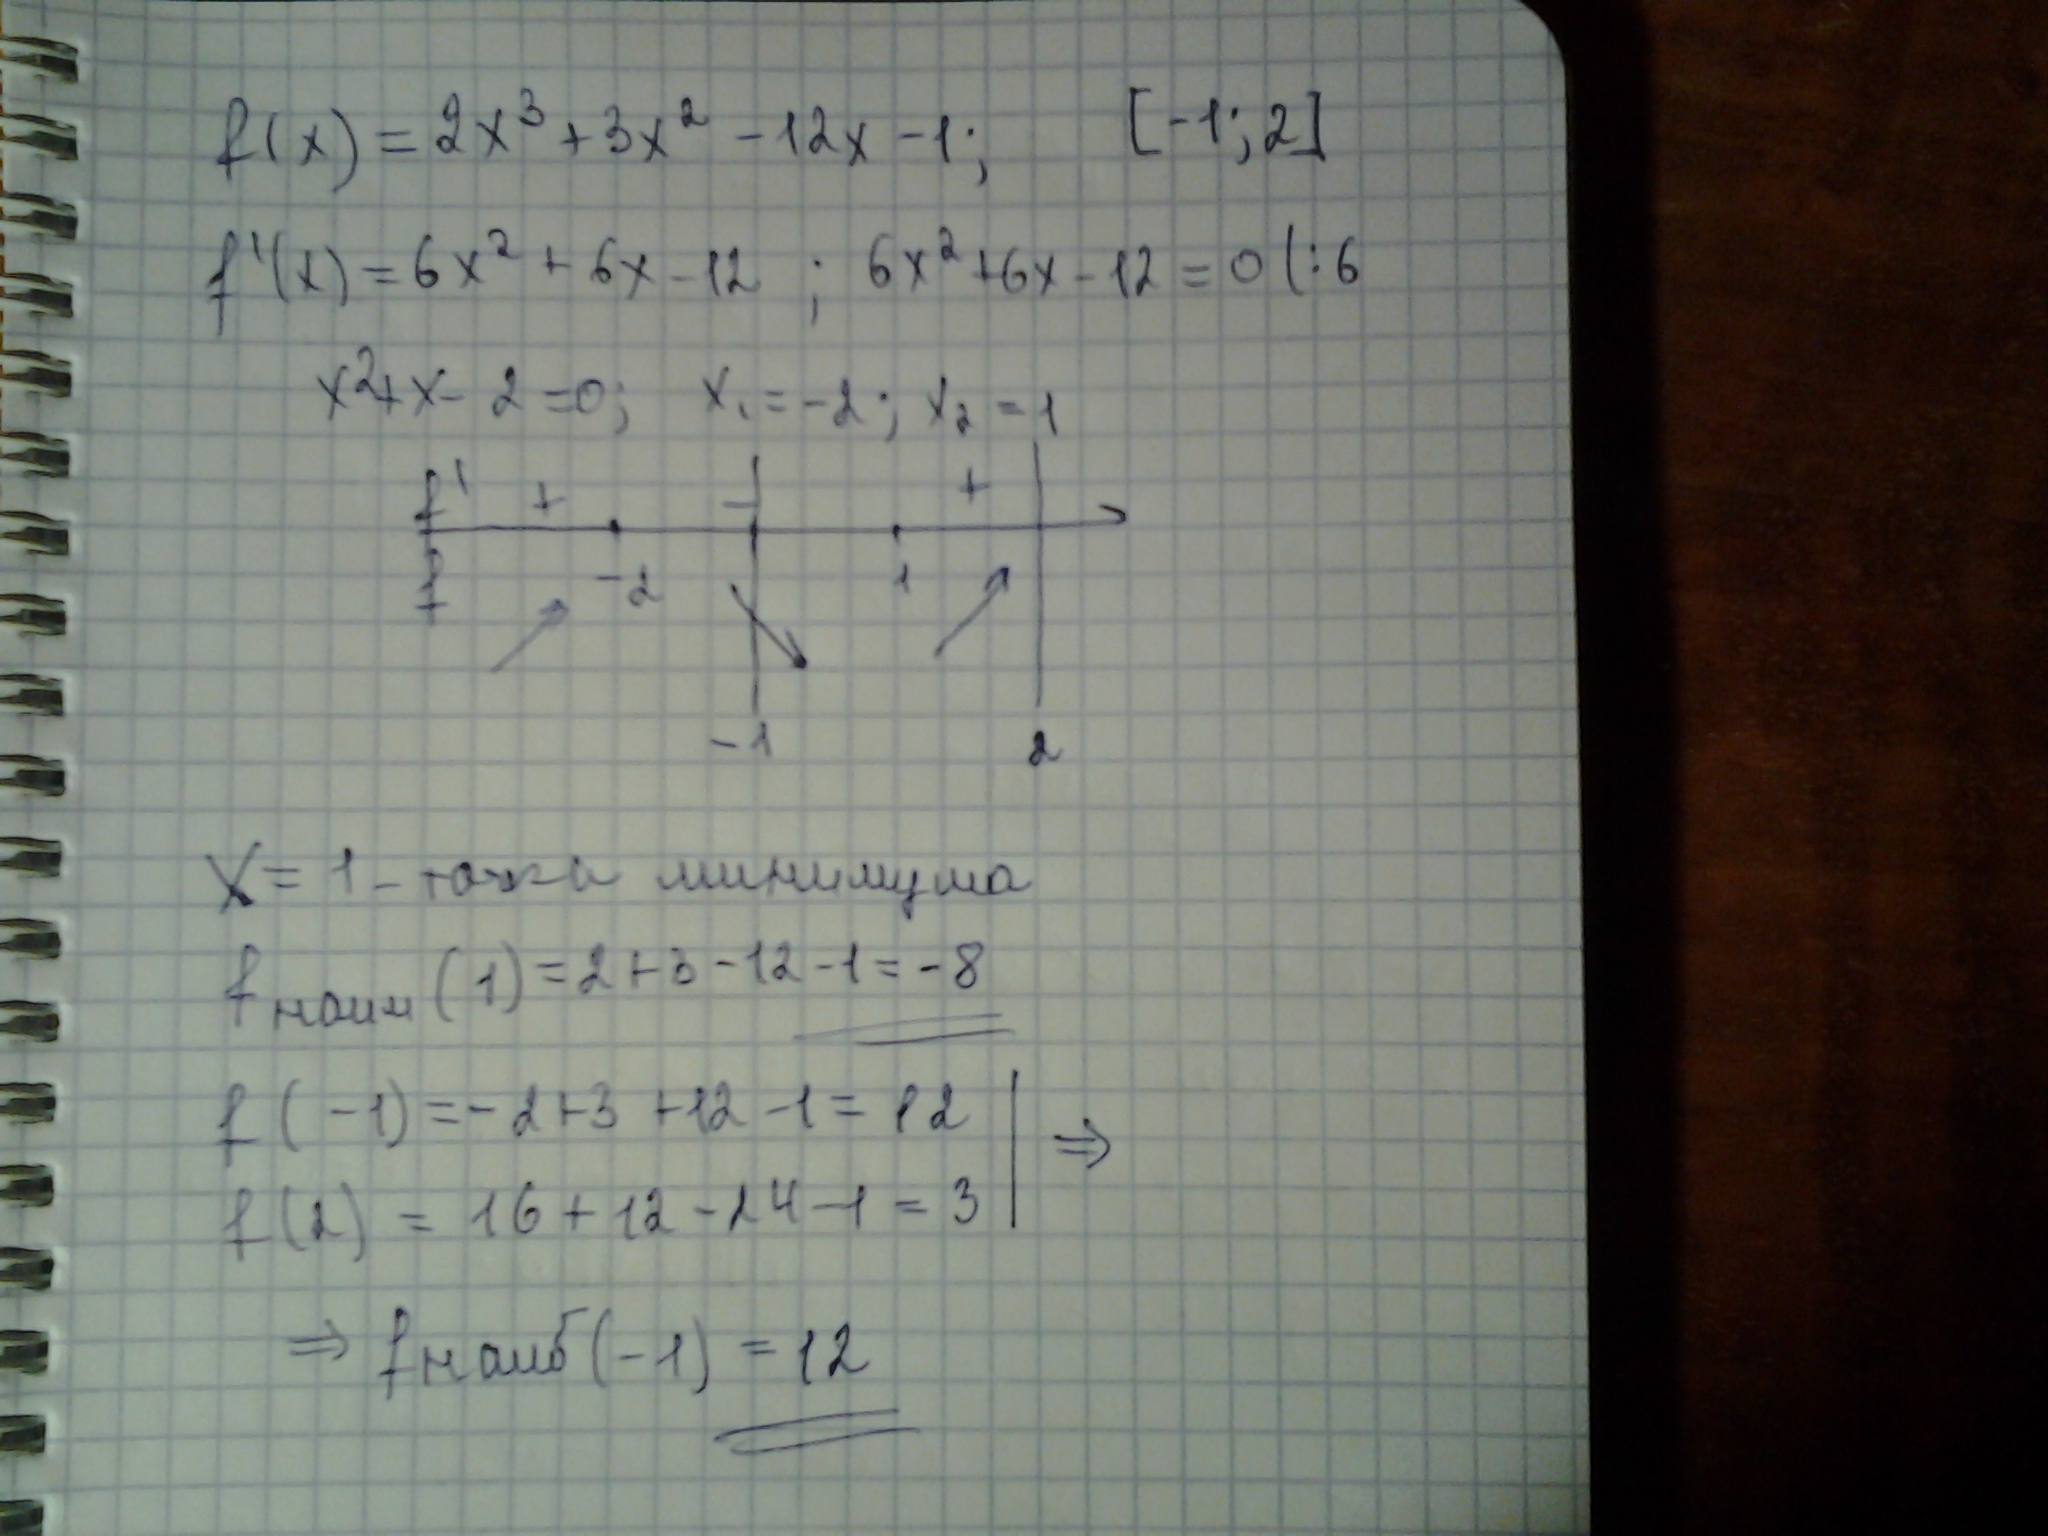 f(x) = 2x³ + 3x² - 12x - 1; [-1; 2]
f'(x) = 6x² + 6x - 12 ; 6x² + 6x - 12 = 0 (:6
x² + x - 2 = 0; x₁ = -2; x₂ = 1
f' + - +
f -2 1
-1 2
x = 1 - точка минимума
f наим (1) = 2 + 3 - 12 - 1 = -8
f(-1) = -2 + 3 + 12 - 1 = 12
⇒
f(2) = 16 + 12 - 24 - 1 = 3
⇒ f наиб (-1) = 12